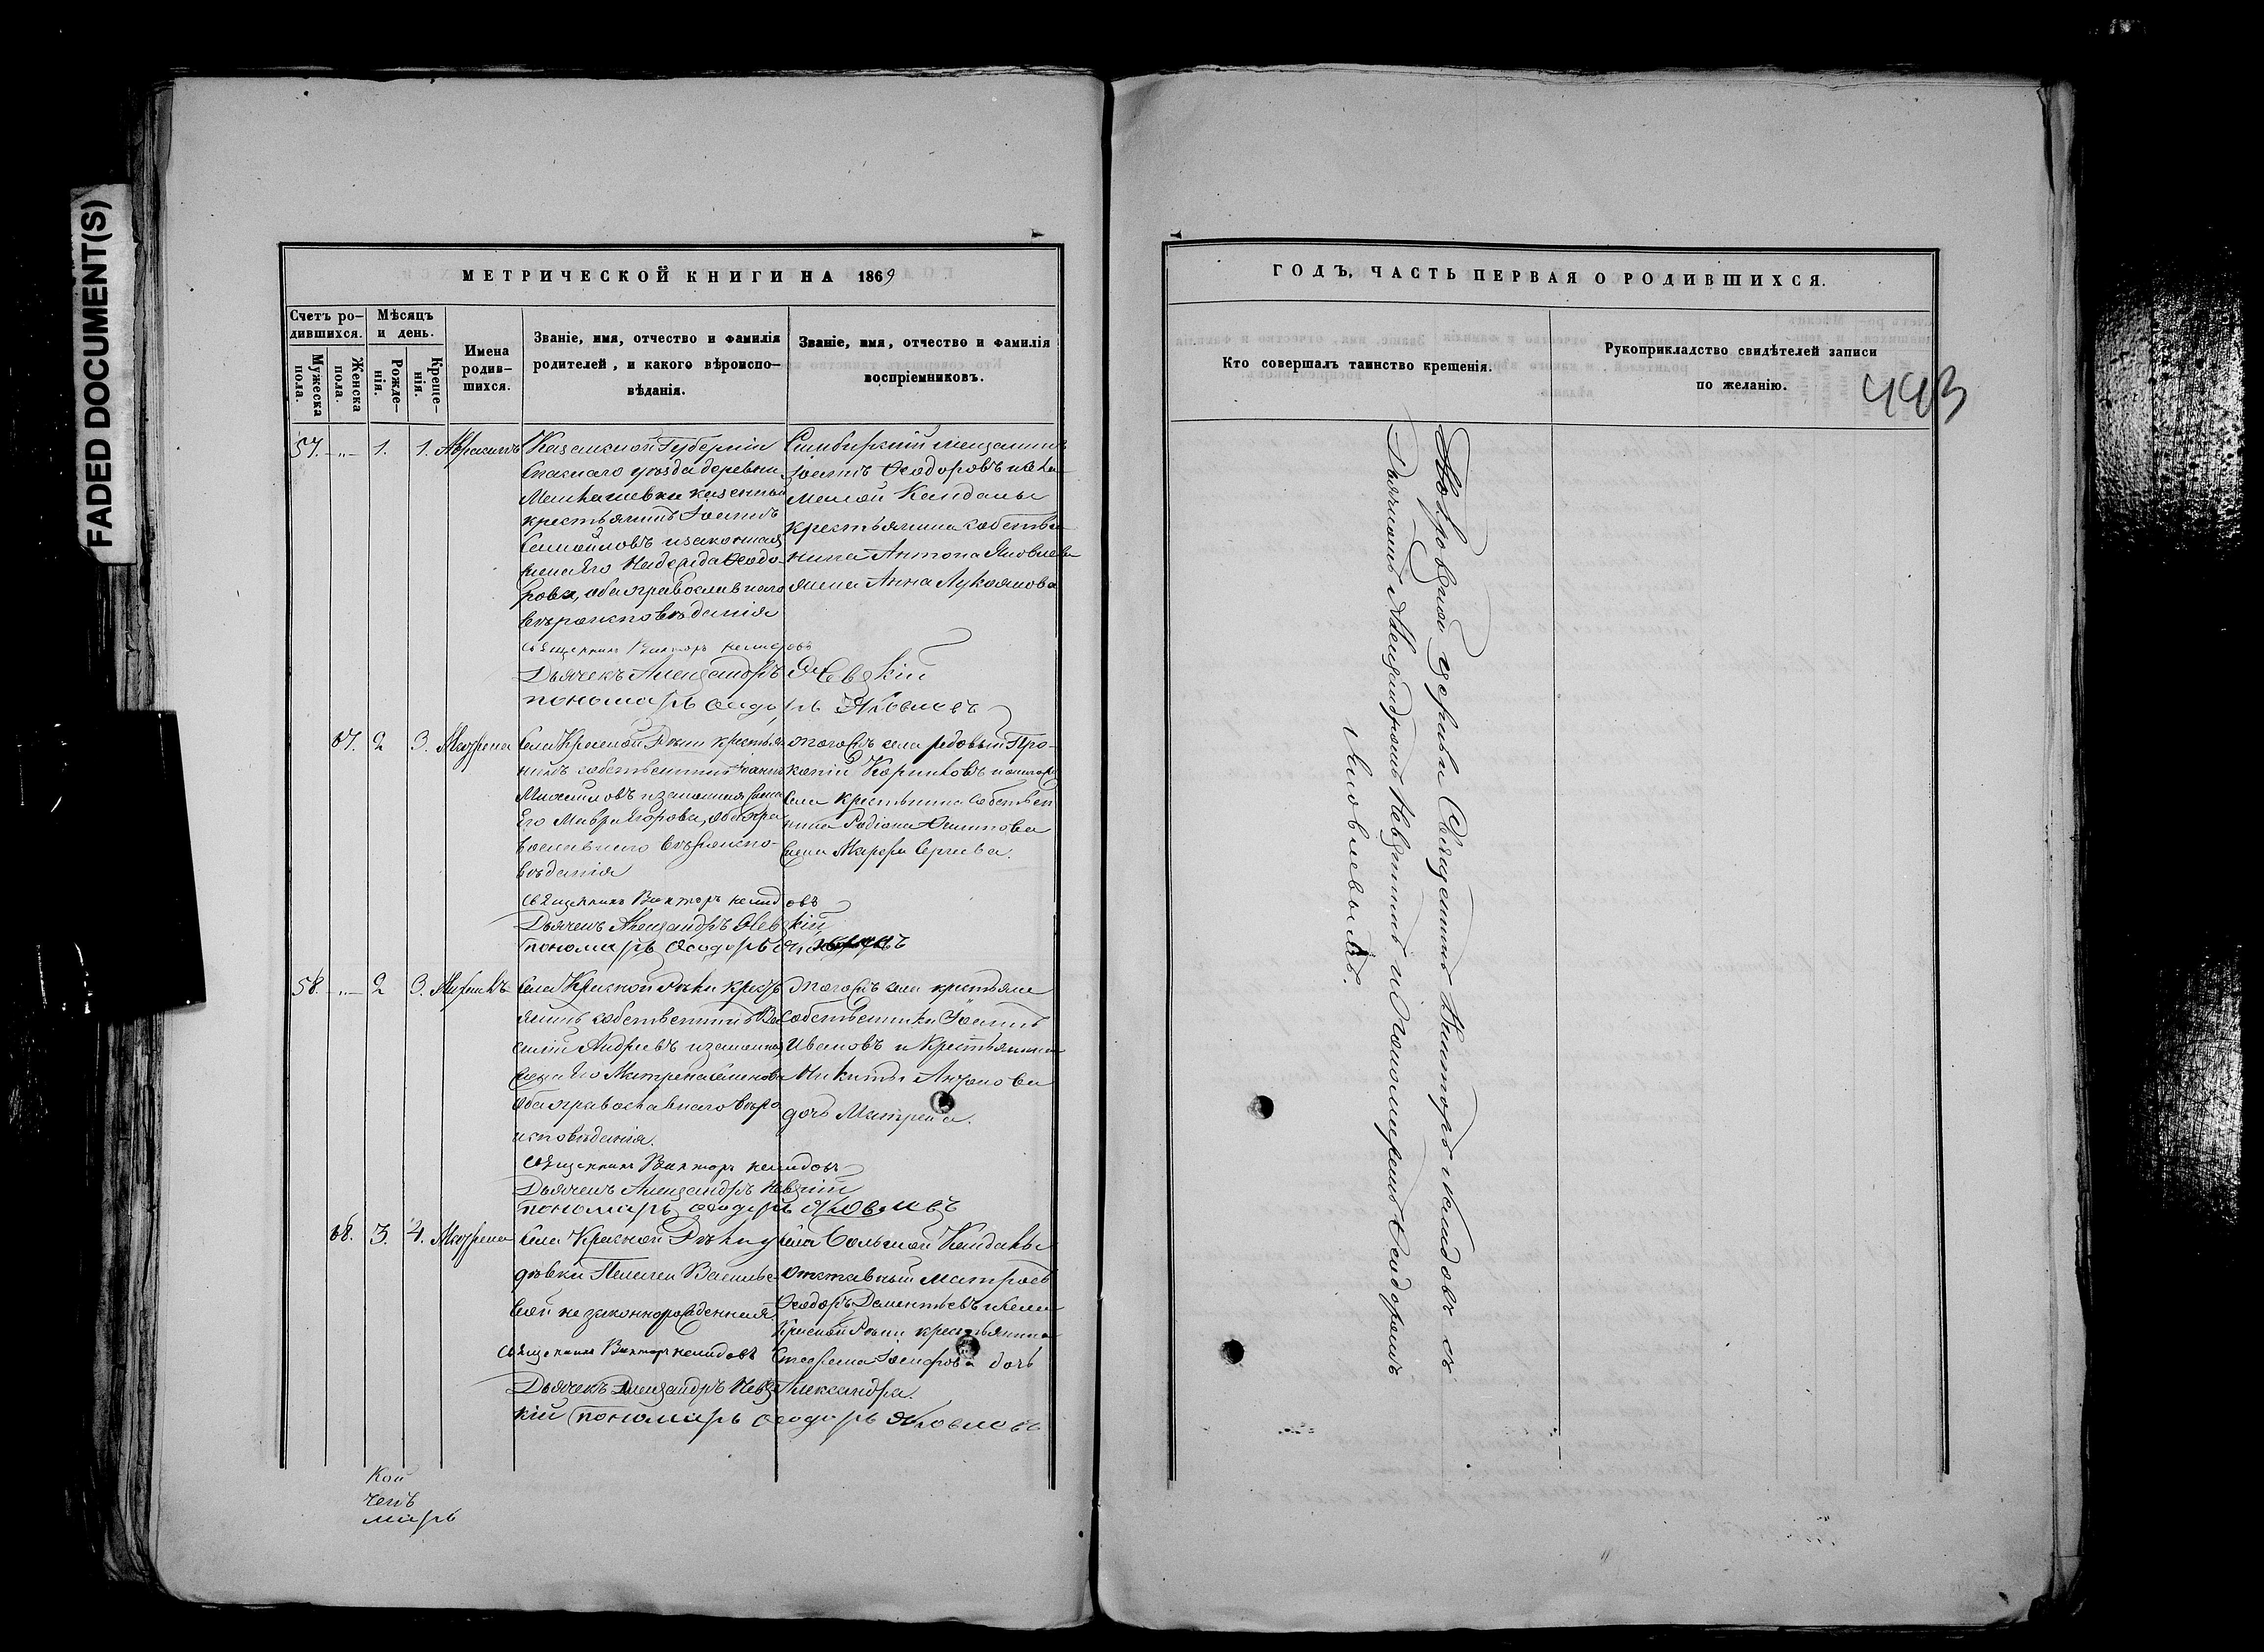 FADED DOCUMENT(S)
МЕТРИЧЕСКОЙ КНИГИ НА 1869
Счетъ ро-
дившихся.
Мужеска
пола.
Женска
пола.
Мѣсяцъ
и день.
Рожде-
нія.
Креще-
нія.
Имена
родив-
шихся.
Званіе, имя, отчество и фамилія
родителей, и какого вѣроиспо-
вѣданія.
Званіе, имя, отчество и фамилія
воспріемниковъ.
57. -"- 1. 1.
Казанской Губерніи
Спаскаго уѣзда деревни
казенный
крестьянинъ Іоаннъ
Самойловъ и законная
жена Его Надежда Ѳеодо-
рова, оба православнаго
вѣроисповѣданія
Симбирскій мещанинъ
Іоаннъ Ѳеодоровъ и села
Малой Кандалы
крестьянина собствен
ника Антона Яковлева
жена Анна Лукоянова
священникъ Викторъ
Дьячекъ Александръ Невскій
пономарь Ѳеодоръ Яковлевъ
67. 2 3.
Села Красной Рѣки крестья
нинъ собственникъ Іоаннъ
Михайловъ и законная жена
Его Мавра Егорова, оба пра
вославнаго вѣроиспо-
вѣданія
тогожъ села рядовый Про-
копій Корниловъ и тогожъ
села крестьянина собствен
ника Родіона
жена Сергеева.
священникъ Викторъ
Дьячекъ Александръ Невскій
пономарь Ѳеодоръ
58. -"- 2 3.
Села Красной Рѣки кресть
янинъ собственникъ Ва
силій Андреевъ и законная
жена Его Матрена Семенова
оба православнаго вѣро
исповѣданія.
тогожъ села крестьяне
собственники Іоаннъ
Ивановъ и крестьянина
Никиты Антонова
дочь Матрена.
священникъ Викторъ
Дьячекъ Александръ Невскій
пономарь Ѳеодоръ Яковлевъ
68. 3. 4.
Села Красной Рѣки у
дѣвки Пелагеи Василье
вой незаконнорожденная
Села Большой Кандалы
Отставный матросъ
Ѳеодоръ Дементьевъ и села
Красной Рѣки крестьянина
дочь
Александра.
священникъ Викторъ
Дьячекъ Александръ Нев
кій пономарь Ѳеодоръ Яковлевъ
кой
чекъ
марь
ГОДЪ, ЧАСТЬ ПЕРВАЯ О РОДИВШИХСЯ.
Кто совершалъ таинство крещенія.
Рукоприкладство свидѣтелей записи
по желанію.
443
Покровской церкви Священникъ Викторъ съ
Дьячкомъ Александромъ Невскимъ и Пономаремъ Ѳеодоромъ
Яковлевымъ.